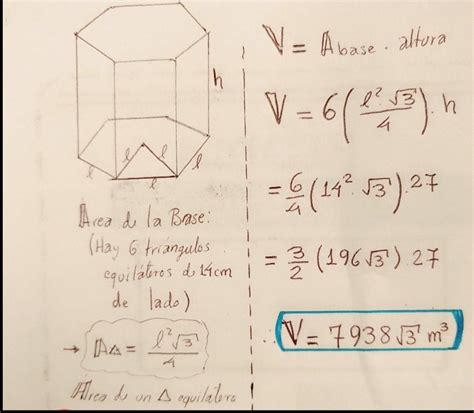 h
l l l
l l
Area de la Base:
(Hay 6 triángulos
equiláteros de 14cm
de lado)
→ A△ = l²√3 / 4
Area de un △ equilátero
V = Abase · altura
V = 6 ( l²·√3 / 4 ) · h
= 6/4 (14²·√3) · 27
= 3/2 (196√3) 27
∴ V = 7938√3 m³